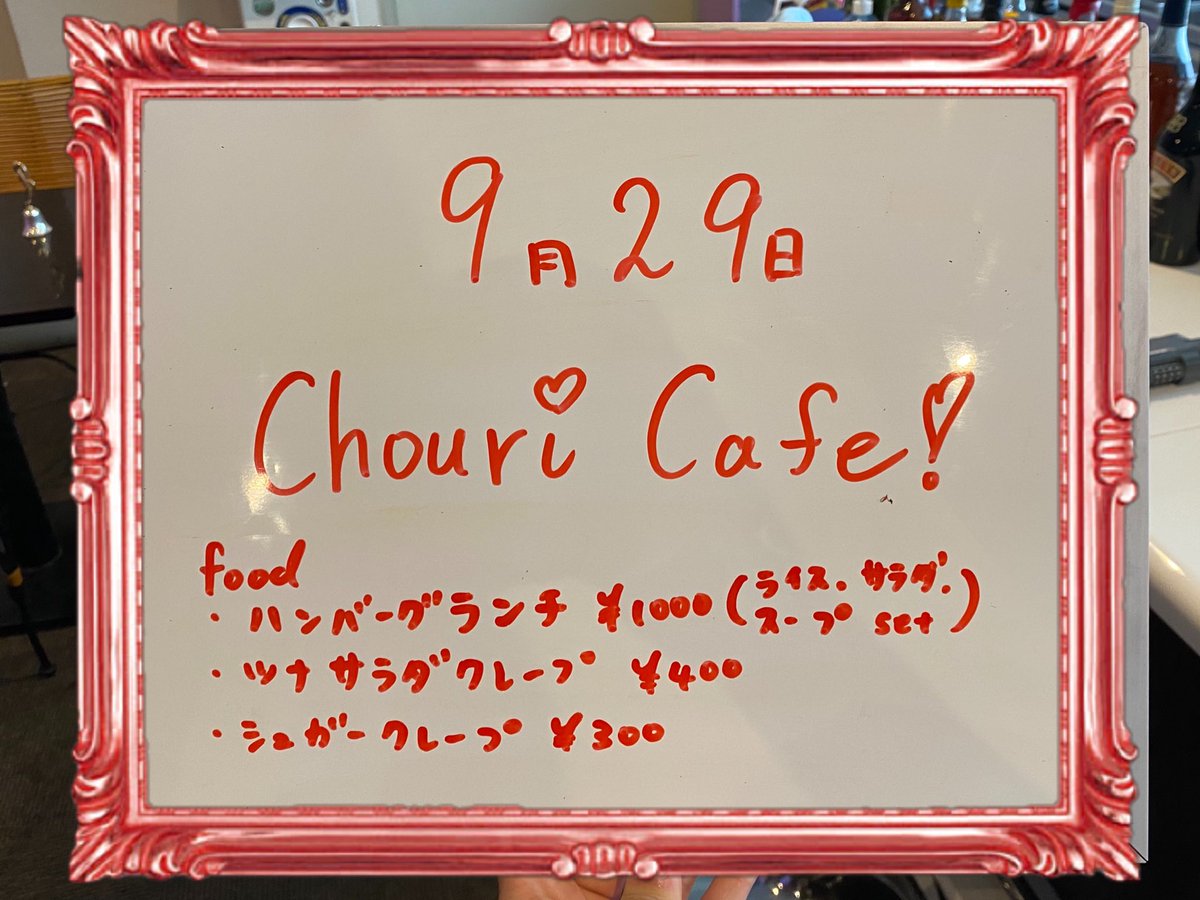 9月29日
Chouri Cafe!
food
・ハンバーグランチ ¥1000 (ライス、サラダ、
スープ set)
・ツナサラダクレープ ¥400
・シュガークレープ ¥300